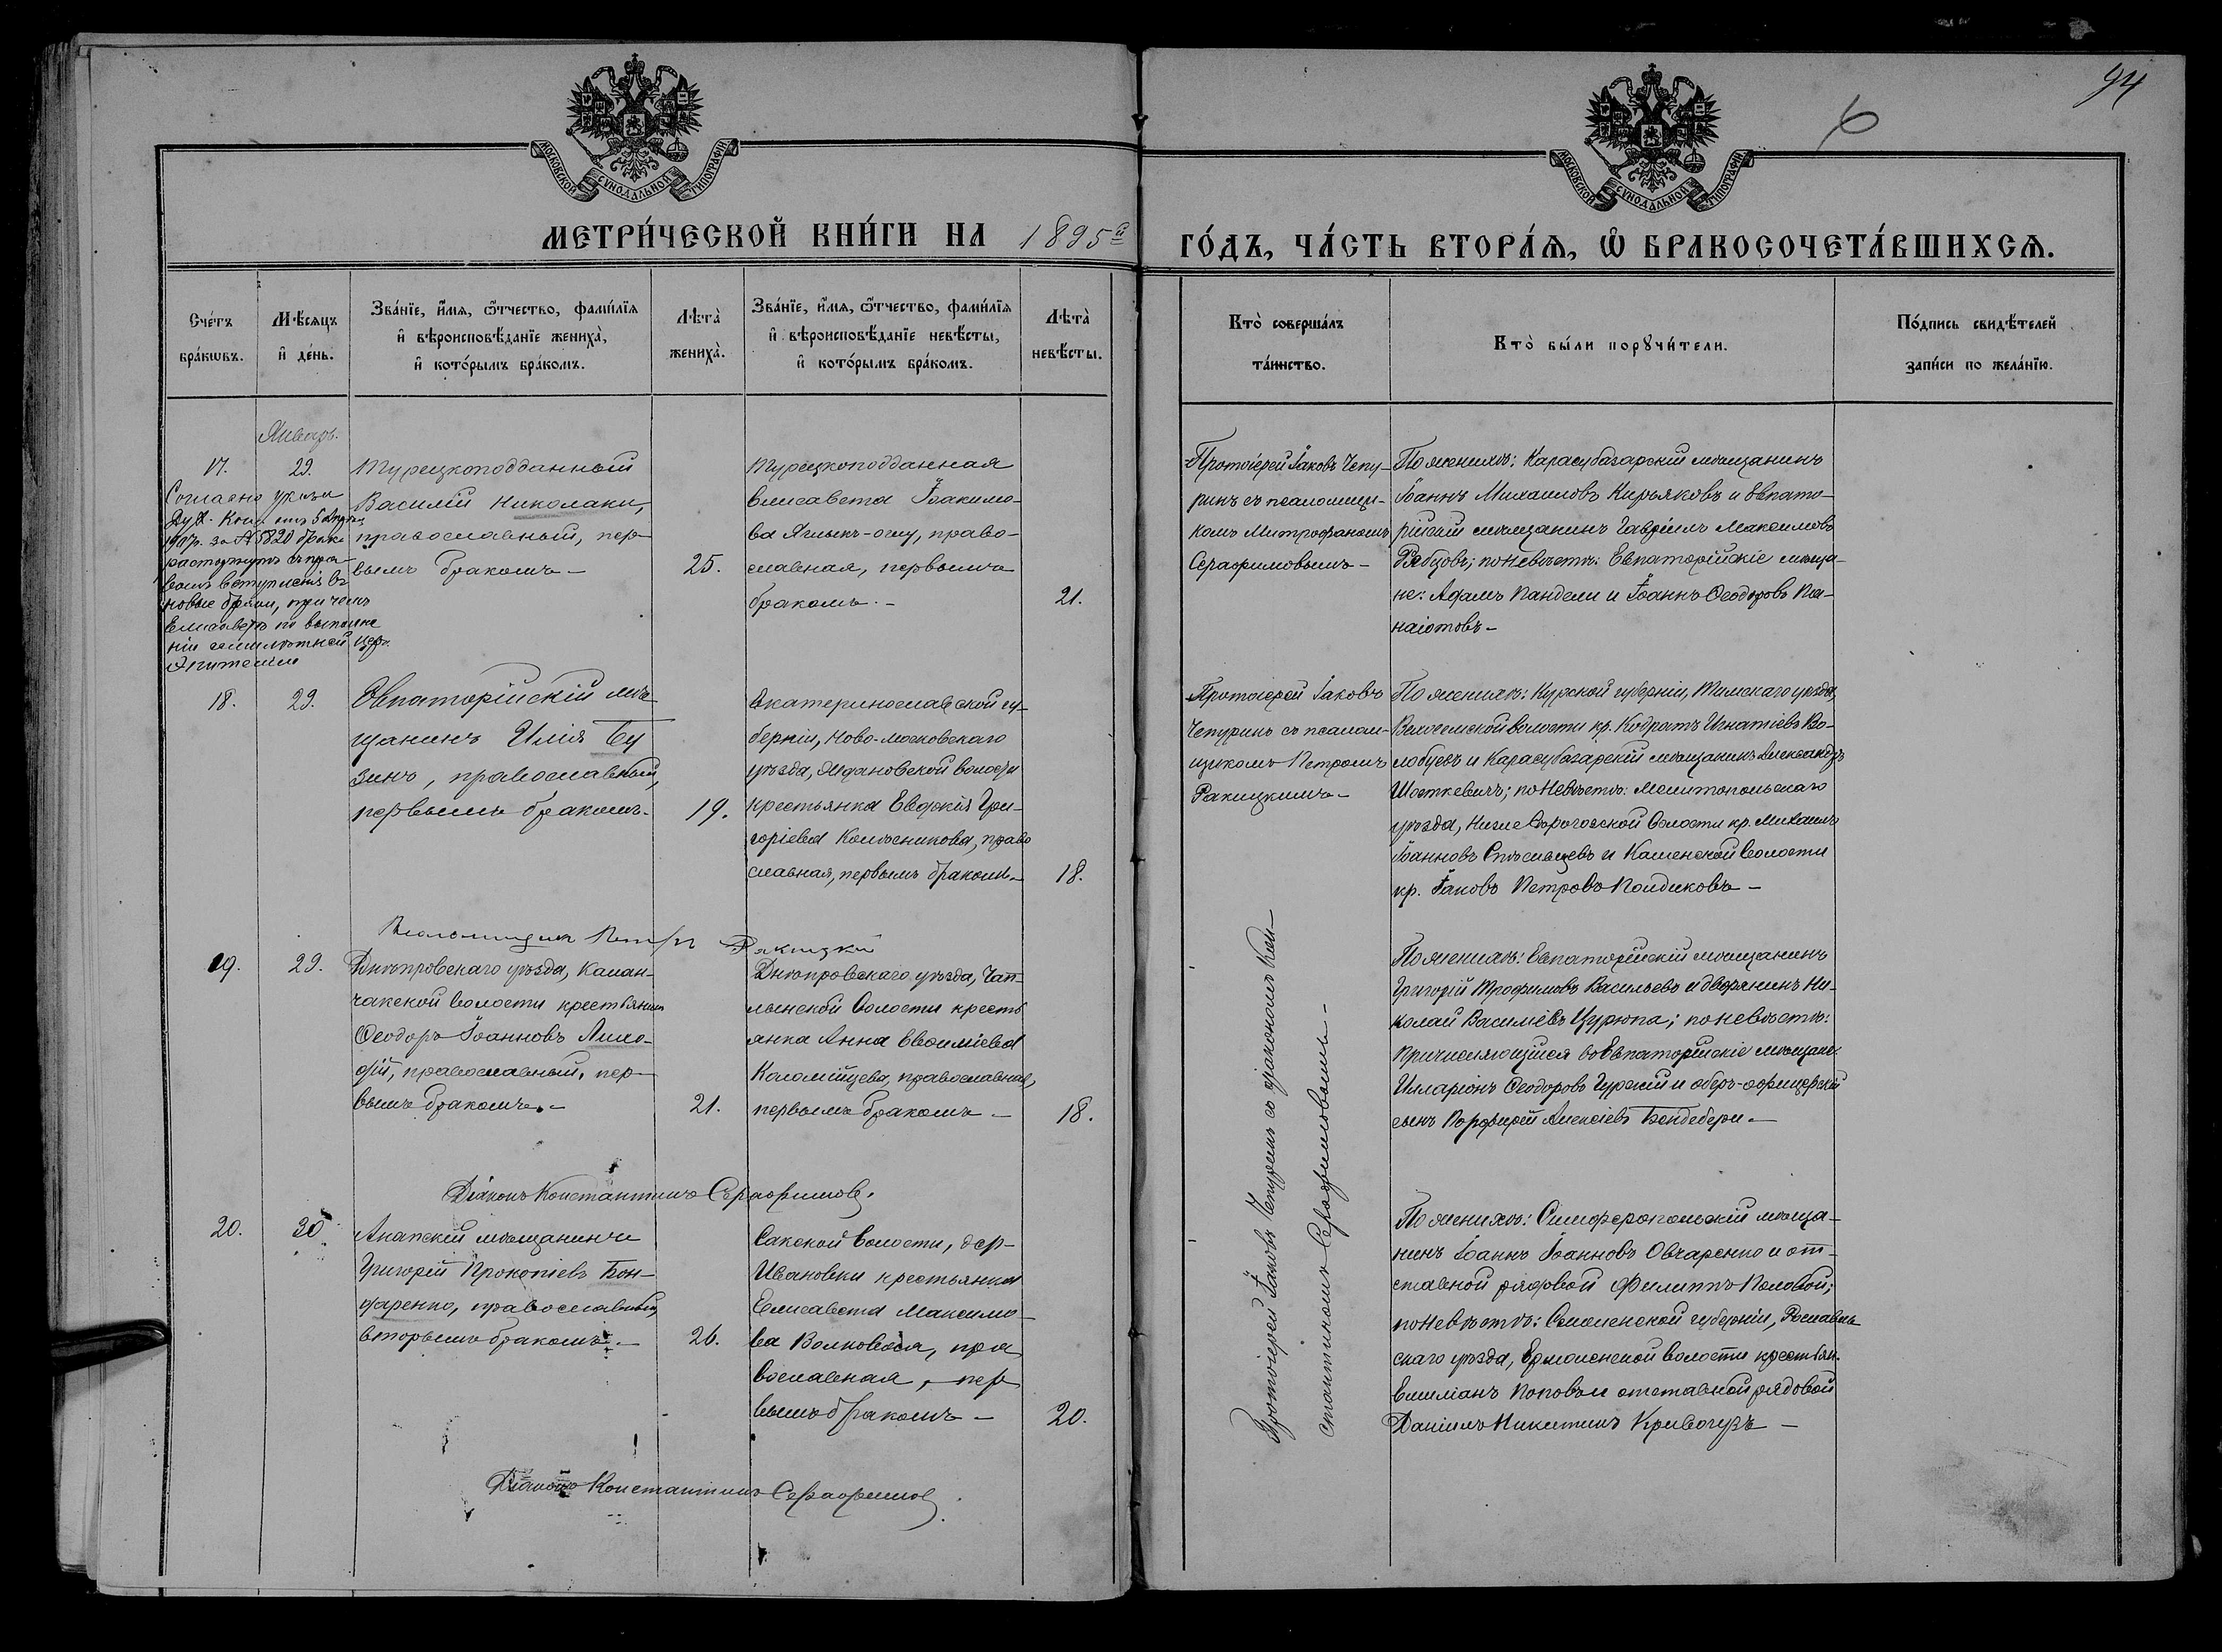 94
6
МОСКОВСКОЙ СѴНОДАЛЬНОЙ ТИПОГРАФІИ
МОСКОВСКОЙ СѴНОДАЛЬНОЙ ТИПОГРАФІИ
МЕТРИ́ЧЕСКОЙ КНИ́ГИ НА 1895й
ГО́ДЪ, ЧА́СТЬ ВТОРА́Ѧ, Ѽ БРАКОСОЧЕТА́ВШИХСѦ.
Сче́тъ
бра́кѡвъ.
Мѣ́сяцъ
и҆ де́нь.
Зва́нїе, и҆́мѧ, ѻ҆́тчество, фами́лїѧ
и҆ вѣроисповѣ́данїе жениха̀,
и҆ кото́рымъ бра́комъ.
Лѣта̀
жениха̀.
Зва́нїе, и҆́мѧ, ѻ҆́тчество, фами́лїѧ
и҆ вѣроисповѣ́данїе невѣ́сты,
и҆ кото́рымъ бра́комъ.
Лѣта̀
невѣ́сты.
Кто̀ соверша́лъ
та́инство.
Кто̀ бы́ли порꙋчи́тели.
По́дпись свидѣ́телей
за́писи по жела́нїю.
Январь.
17.
29.
Согласно указа
Дух. Конс. отъ 5 Апрѣля
1907г. за № 5820 бракъ
расторгнутъ съ пра-
вомъ вступленія въ
новые браки, при чемъ
Елисаветѣ по выполне
ніи семилѣтней церк.
Эпитеміи
Турецкоподданный
Василій Николаки,
православный, пер-
вымъ бракомъ-
25.
Турецкоподданная
Елисавета Іоакимо-
ва -оглу, право-
славная, первымъ
бракомъ.-
21.
Протоіерей Іаковъ Чепу-
ринъ съ псаломщи-
комъ Митрофаномъ
Серафимовымъ-
По женихѣ: Карасубазарскій мѣщанинъ
Іоаннъ Михаиловъ Кирьяковъ и Евпато-
рійскій мѣщанинъ Гавріилъ Максимовъ
Рябцовъ; по невѣстѣ: Евпаторійскіе мѣща-
не: Адамъ Пандели и Іоаннъ Ѳеодоровъ Па-
наіотовъ-
18.
29.
Евпаторійскій мѣ
щанинъ Илія Бу
зинъ, православный,
первымъ бракомъ-
19.
Екатеринославской гу-
берніи, Ново-московскаго
уѣзда, Ждановской волости
крестьянка Евдокія Гри-
горіева Колѣсникова, право
славная, первымъ бракомъ-
18.
Протоіерей Іаковъ
Чепуринъ съ псалом-
щикомъ Петромъ
Ракицкимъ-
По женихѣ: Курской губерніи, Тимскаго уѣзда,
волости кр. Кодратъ Игнатіевъ Во-
лобуевъ и Карасубазарскій мѣщанинъ Александръ
Шоткевичъ; по невѣстѣ: Мелитопольскаго
уѣзда, Нижне Сѣрогозской волости кр. Михаилъ
Іоанновъ и Каменской волости
кр. Іаковъ Петровъ Полдиковъ-
Псаломщикъ Петръ Ракицкій
19.
29.
Днѣпровскаго уѣзда, Калан-
чакской волости крестьянинъ
Ѳеодоръ Іоанновъ Лико-
фій, православный, пер-
вымъ бракомъ.-
21.
Днѣпровскаго уѣзда, Чап-
линской волости кресть
янка Анна Евѳиміева
Коломійцева, православная,
первымъ бракомъ-
18.
Протоіерей Іаковъ Чепуринъ со діакономъ Кон-
стантиномъ Серафимовымъ-
По женихѣ: Евпаторійскій мѣщанинъ
Григорій Трофимовъ Васильевъ и дворянинъ Ни-
колай Василіевъ Цурюпа; по невѣстѣ:
причисляющійся во Евпаторійскіе мѣщане:
Илларіонъ Ѳеодоровъ Гуржій и оберъ-офицерскій
сынъ Порфирій Алексіевъ Бендебери-
Діаконъ Константинъ Серафимовъ.
20.
30
Анапскій мѣщанинъ
Григорій Прокопіевъ Бон-
даренко, православный,
вторымъ бракомъ-
26.
Сакской волости, дер-
Ивановки крестьянка
Елисавета Максимо-
ва Волковая, пра
вославная, пер
вымъ бракомъ-
20.
По женихѣ: Симферопольскій мѣща-
нинъ Іоаннъ Іоанновъ Овчаренко и от-
ставной рядовой Филиппъ Половой;
по невѣстѣ: Смоленской губерніи, Рославль
скаго уѣзда, Ермоленской волости крестьян.
Емиліанъ Поповъ и отставной рядовой
Даніилъ Никитинъ Кривогузъ-
Діаконъ Константинъ Серафимовъ.